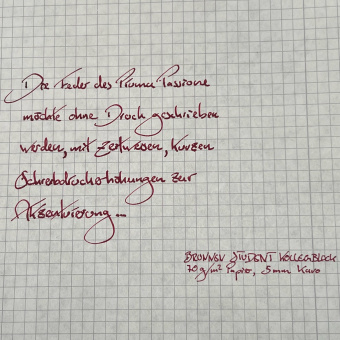 Die Feder des Piuma Passione
möchte ohne Druck geschrieben
werden, mit zeitweisen, kurzen
Schreibdruckerhöhungen zur
Akzentuierung...
BRUNNEN STUDENT KOLLEGBLOCK
70 g/m² Papier, 5mm Karo